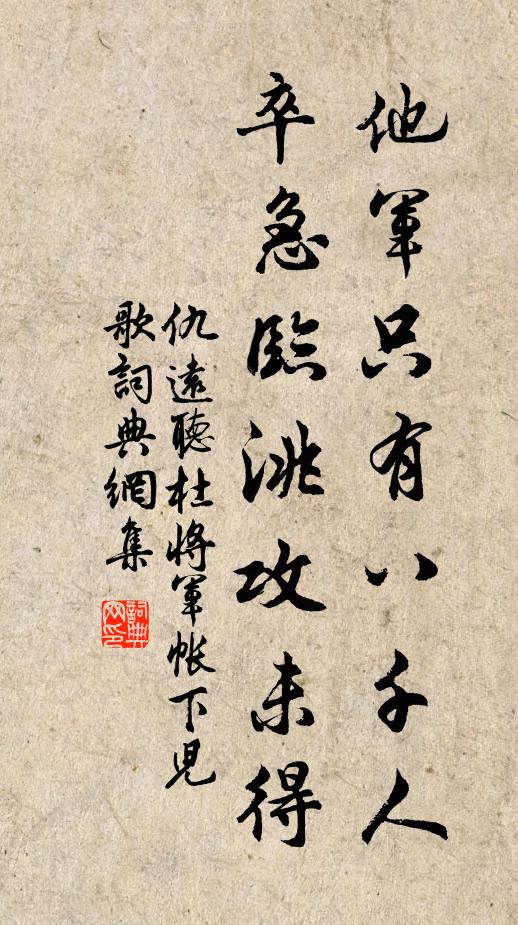 他軍只有八千人
卒急臨洮攻未得
仇遠聽杜將軍帳下兒
歌詞典網集
詞典
网印